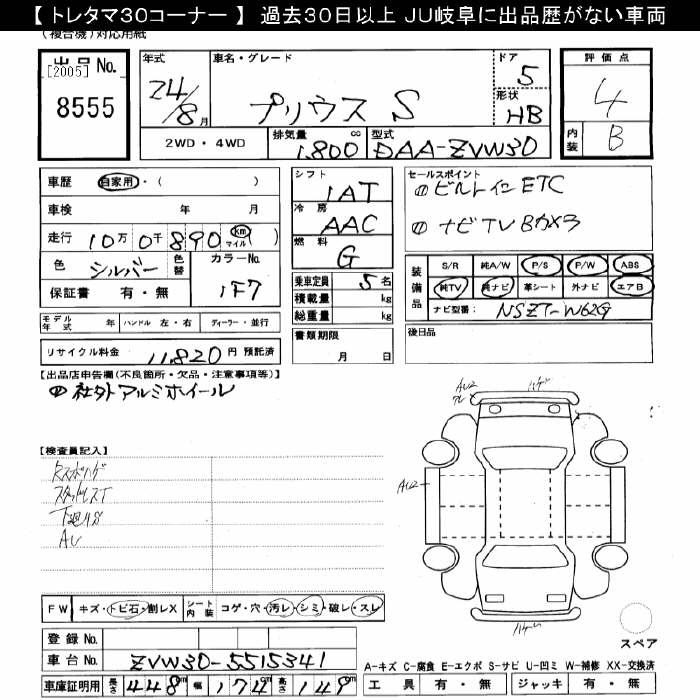 【 トレタマ30コーナー 】 過去30日以上 JU岐阜に出品歴がない車両
(複合機)対応用紙
出品 No.
[2005]
8555
年式
24/8月
車名・グレード
プリウス S
ドア
5
形状
HB
評価点
4
内装
B
2WD・4WD
排気量
1,800 cc
型式
DAA-ZVW30
車歴 自家用・( )
車検 年 月
走行 10万 0千 890 km マイル ( )
色 シルバー 色替 カラーNo. 1F7
保証書 有・無
モデル年式 年 ハンドル 左・右 ディーラー・並行
リサイクル料金 11,820 円 預託済
シフト
IAT
冷房
AAC
燃料
G
乗車定員 5 名
積載量 kg
総重量 kg
書類期限
月 日
セールスポイント
① ビルトインETC
② ナビTV Bカメラ
装備品
S/R 純A/W P/S P/W ABS
純TV 純ナビ 革シート 外ナビ エアB
ナビ型番: NSZT-W62G
後日品
【出品店申告欄(不良箇所・欠品・注意事項等)】
① 社外アルミホイール
【検査員記入】
AU
AU2
ハゲ
AU2
ハゲ
FW キズ・トビ石・削レX シート内装 コゲ・穴・汚レ・シミ・破レ・スレ
登録 No.
車台 No. ZVW30-5515341
車庫証明用 長さ 448 cm 幅 174 cm 高さ 149 cm
スペア
A-キズ C-腐食 E-エクボ S-サビ U-凹ミ W-補修 XX-交換済
工具 有・無 ジャッキ 有・無